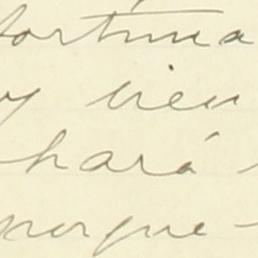 fortuna
y bien
hará
porque-